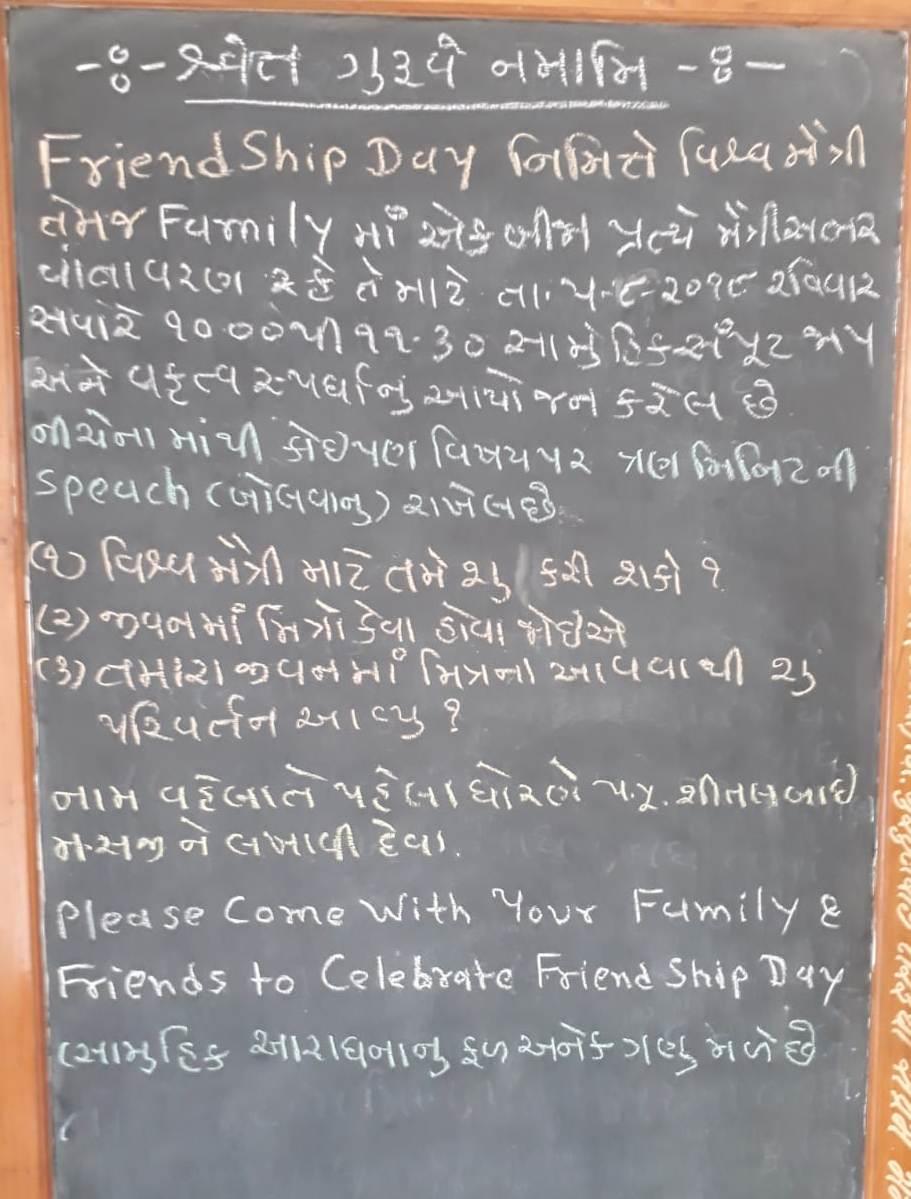 -:- શ્વેત ગુરૂવે નમામિ -:-
FriendShip Day નિમિત્તે વિશ્વ મૈત્રી
તેમજ Family માઁ એક બીજા પ્રત્યે મૈત્રીસભર
વાતાવરણ રહે તે માટે તા. ૫-૮-૨૦૧૮ રવિવાર
સવારે ૧૦.૦૦થી ૧૧.૩૦ સામુહિક સંપૂટ જાપ
અને વકૃત્વ સ્પર્ધાનું આયોજન કરેલ છે
નીચેના માંથી કોઇપણ વિષયપર ત્રણ મિનિટની
Speach (બોલવાનુ) રાખેલ છે.
(૧) વિશ્વ મૈત્રી માટે તમે શુ કરી શકો ?
(૨) જીવનમાઁ મિત્રો કેવા હોવા જોઇએ
(૩) તમારા જીવનમાઁ મિત્રના આવવાથી શુ
પરિવર્તન આવ્યુ ?
નામ વહેલા તે પહેલા ધોરણે પ.પૂ. શીતલબાઇ
મ.સજી ને લખાવી દેવા.
Please Come With Your Family &
Friends to Celebrate FriendShip Day
(સામુહિક આરાધનાનુ ફળ અનેક ગણુ મળે છે